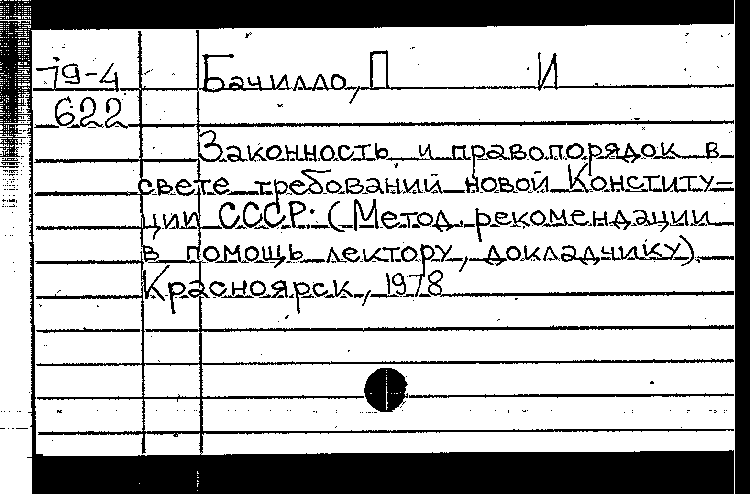 79-4 Бачилло, П И
622
Законность и правопорядок в
свете требований новой Конститу-
ции СССР: (Метод. рекомендации
в помощь лектору, докладчику).
Красноярск, 1978